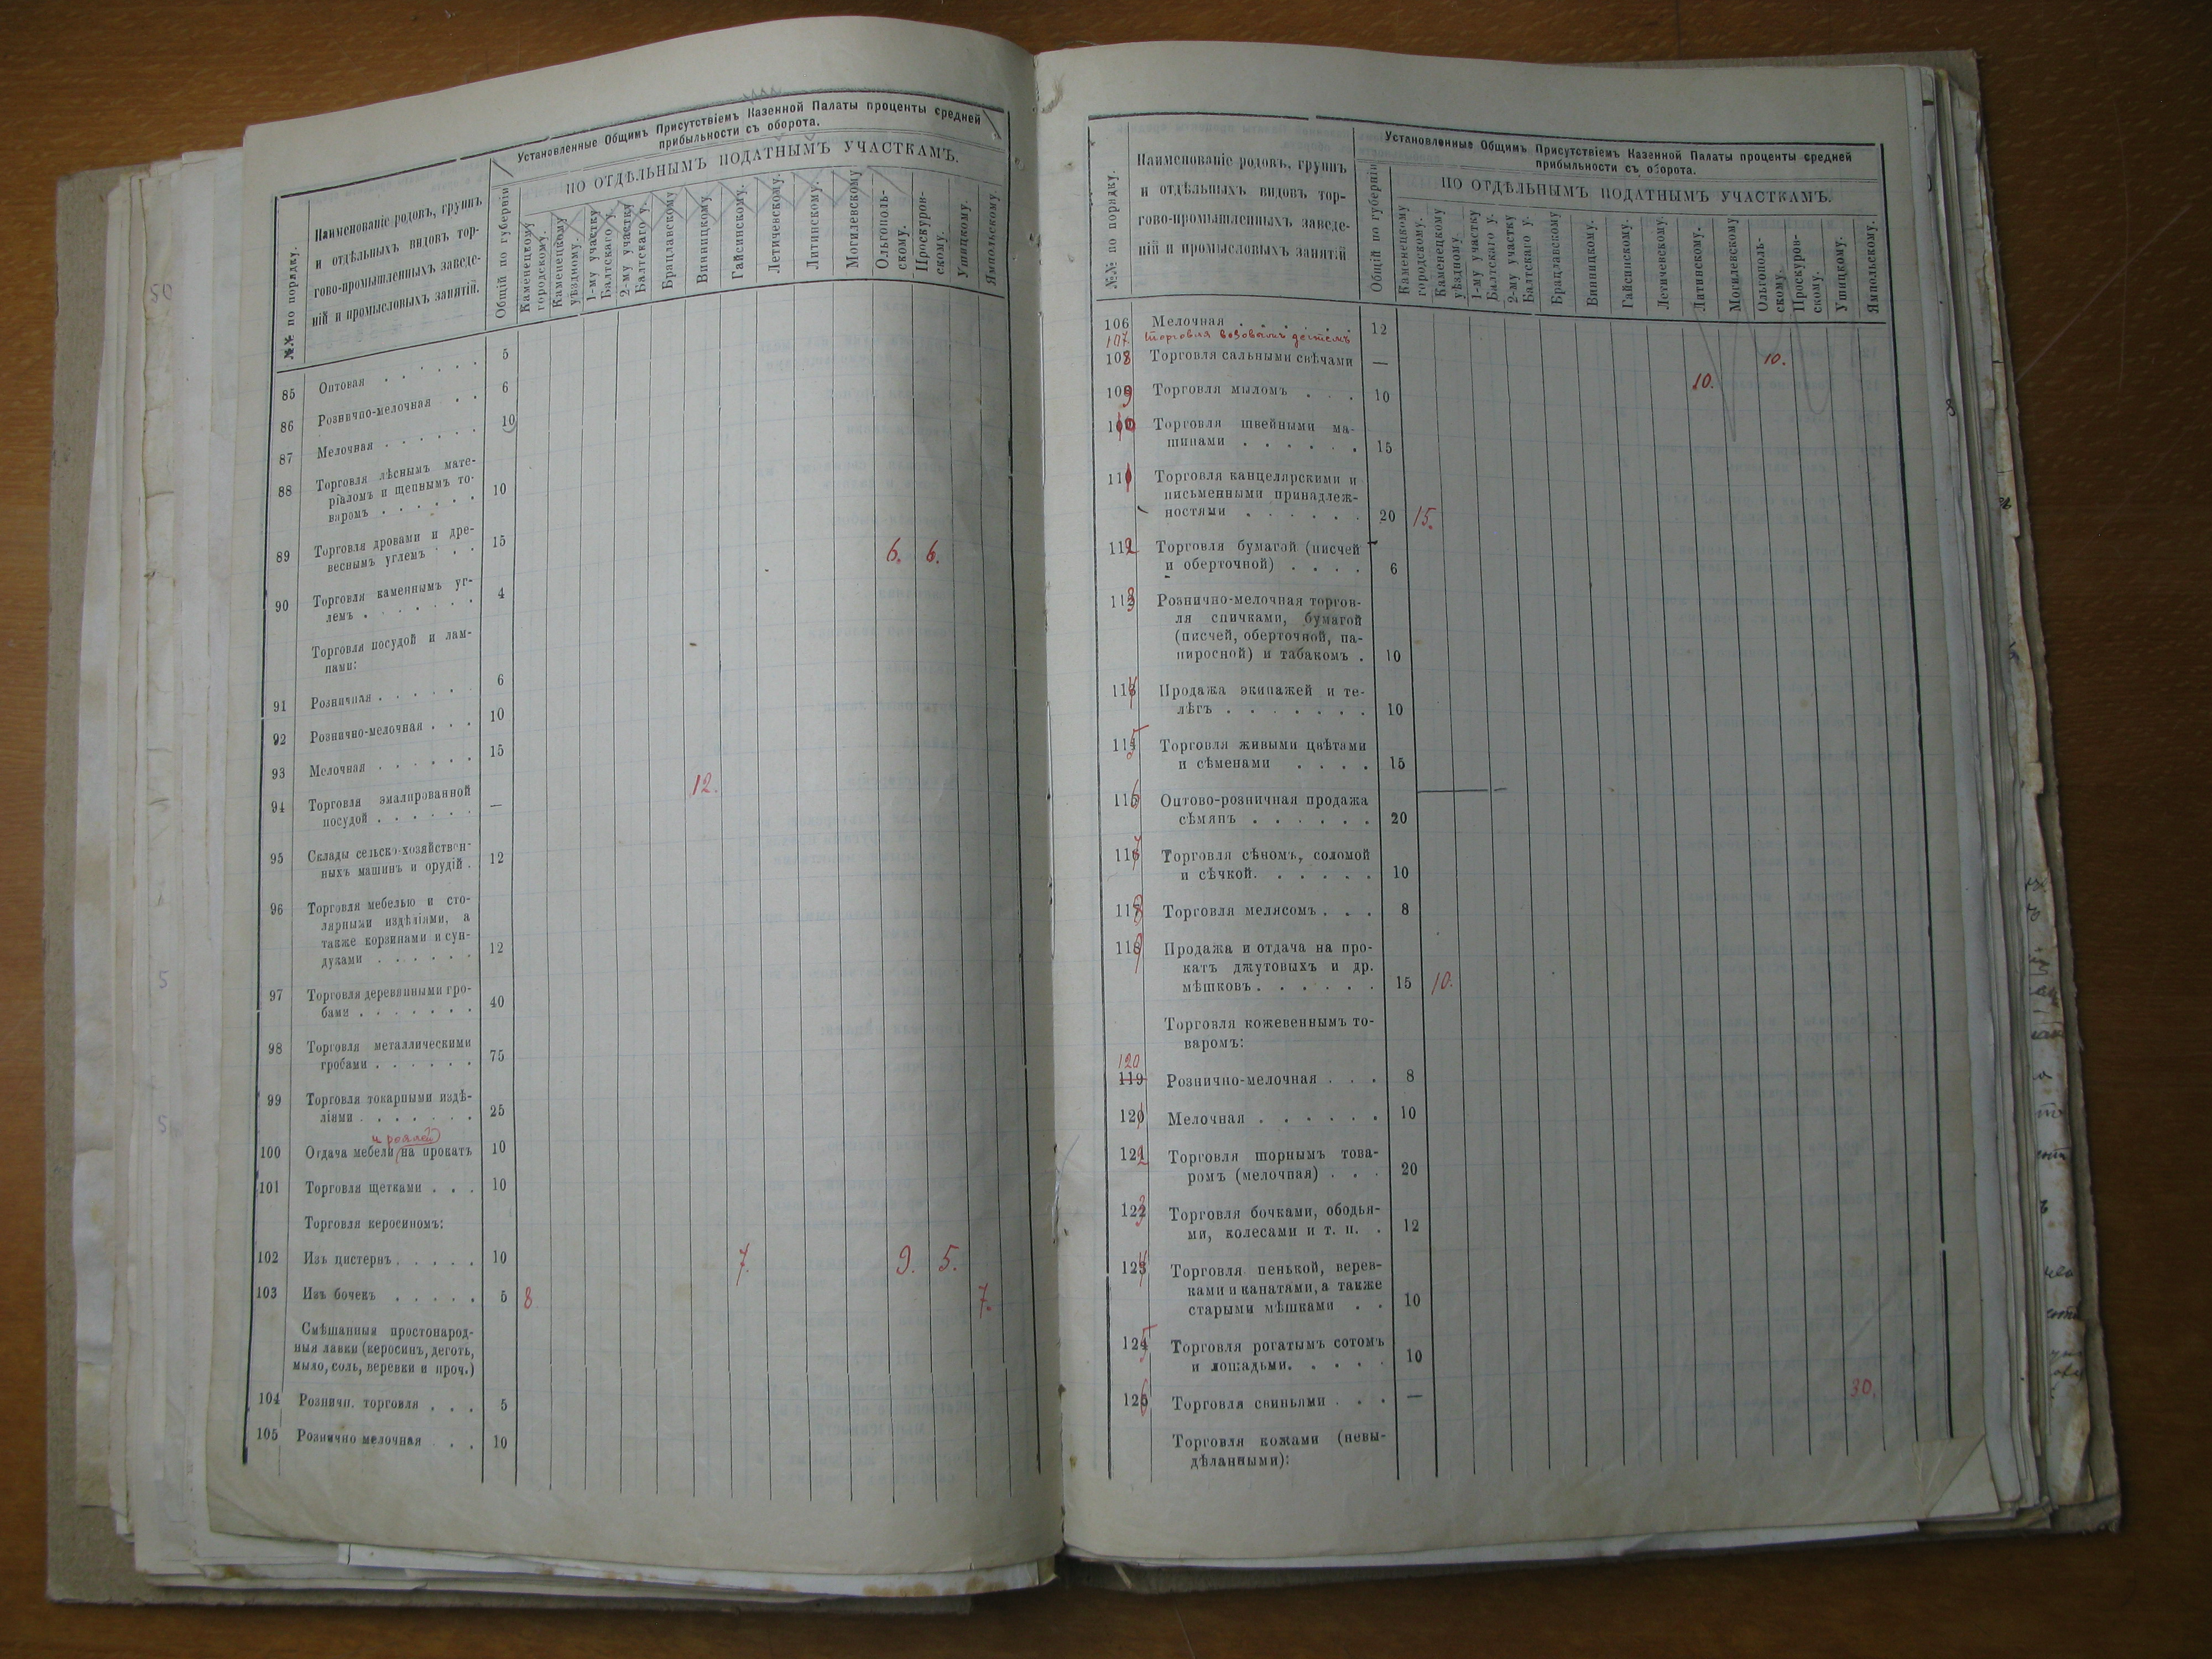 Установленные Общимъ Присутствіемъ Казенной Палаты проценты средней
прибыльности съ оборота.
ПО ОТДѢЛЬНЫМЪ ПОДАТНЫМЪ УЧАСТКАМЪ.
№№ по порядку.
Наименованіе родовъ, группъ
и отдѣльныхъ видовъ тор-
гово-промышленныхъ заведе-
ній и промысловыхъ занятій.
Общій по губерніи
Каменецкому
городскому.
Каменецкому
уѣздному.
1-му участку
Балтскаго у.
2-му участку
Балтскаго у.
Брацлавскому
Винницкому.
Гайсинскому.
Летичевскому.
Литинскому.
Могилевскому
Ольгополь-
скому.
Проскуров-
скому.
Ушицкому.
Ямпольскому.
85 Оптовая . . . . . . 5
86 Рознично-мелочная . . 6
87 Мелочная . . . . . . 10
88 Торговля лѣснымъ мате-
ріаломъ и щепнымъ то-
варомъ . . . . . . 10
89 Торговля дровами и дре-
веснымъ углемъ . . . 15 6. 6.
90 Торговля каменнымъ уг-
лемъ . . . . . . . 4
Торговля посудой и лам-
пами:
91 Розничная . . . . . 6
92 Рознично-мелочная . . . 10
93 Мелочная . . . . . . 15
94 Торговля эмалированной
посудой . . . . . . — 12.
95 Склады сельско-хозяйствен-
ныхъ машинъ и орудій . 12
96 Торговля мебелью и сто-
лярными издѣліями, а
также корзинами и сун-
дуками . . . . . . 12
97 Торговля деревянными гро-
бами . . . . . . . 40
98 Торговля металлическими
гробами . . . . . . 75
99 Торговля токарными издѣ-
ліями . . . . . . . 25
и роялей
100 Отдача мебели на прокатъ 10
101 Торговля щетками . . . 10
Торговля керосиномъ:
102 Изъ цистернъ . . . . . 10 7. 9. 5.
103 Изъ бочекъ . . . . . 5 8 7.
Смѣшанныя простонарод-
ныя лавки (керосинъ, деготь,
мыло, соль, веревки и проч.)
104 Розничн. торговля . . . 5
105 Рознично мелочная . . 10
Установленные Общимъ Присутствіемъ Казенной Палаты проценты средней
прибыльности съ оборота.
ПО ОТДѢЛЬНЫМЪ ПОДАТНЫМЪ УЧАСТКАМЪ.
№№ по порядку.
Наименованіе родовъ, группъ
и отдѣльныхъ видовъ тор-
гово-промышленныхъ заведе-
ній и промысловыхъ занятій
Общій по губерніи
Каменецкому
городскому.
Каменецкому
уѣздному.
1-му участку
Балтскаго у.
2-му участку
Балтскаго у.
Брацлавскому
Винницкому.
Гайсинскому.
Летичевскому.
Литинскому.
Могилевскому
Ольгополь-
скому.
Проскуров-
скому.
Ушицкому.
Ямпольскому.
106 Мелочная . . . . . . 12
107. Торговля дегтемъ 10.
108 Торговля сальными свѣчами — 10.
109 Торговля мыломъ . . . 10
110 Торговля швейными ма-
шинами . . . . . . 15
111 Торговля канцелярскими и
письменными принадлеж-
ностями . . . . . . 20 15.
112 Торговля бумагой (писчей
и оберточной) . . . . 6
113 Рознично-мелочная торгов-
ля спичками, бумагой
(писчей, оберточной, па-
пиросной) и табакомъ . 10
114 Продажа экипажей и те-
лѣгъ . . . . . . . 10
115 Торговля живыми цвѣтами
и сѣменами . . . . 15
116 Оптово-розничная продажа
сѣмянъ . . . . . . 20
117 Торговля сѣномъ, соломой
и сѣчкой. . . . . . 10
118 Торговля мелясомъ . . . 8
119 Продажа и отдача на про-
катъ джутовыхъ и др.
мѣшковъ . . . . . . 15 10.
Торговля кожевеннымъ то-
варомъ:
120
119 Рознично-мелочная . . . 8
121 Мелочная . . . . . . 10
122 Торговля шорнымъ това-
ромъ (мелочная) . . . 20
123 Торговля бочками, ободья-
ми, колесами и т. п. . 12
124 Торговля пенькой, верев-
ками и канатами, а также
старыми мѣшками . . 10
125 Торговля рогатымъ скотомъ
и лошадьми. . . . . 10
126 Торговля свиньями . . . — 30.
Торговля кожами (невы-
дѣланными):